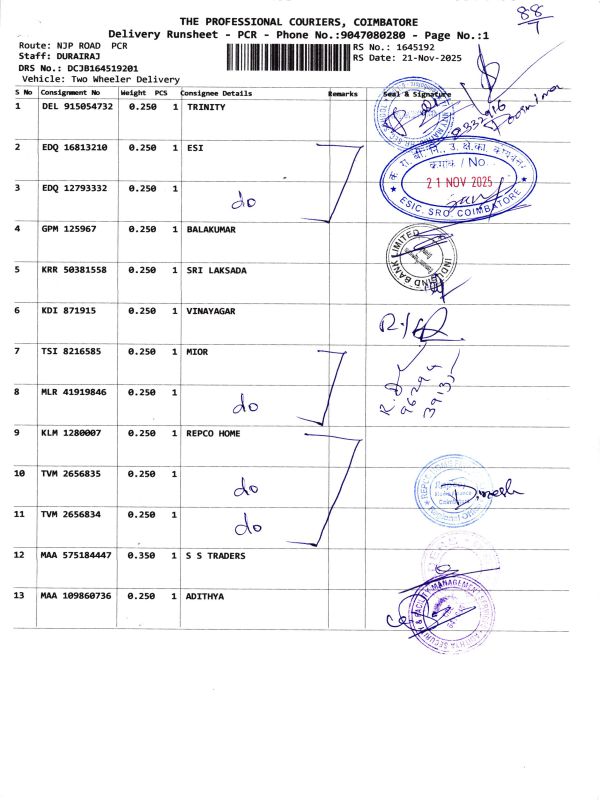 88/7
THE PROFESSIONAL COURIERS, COIMBATORE
Delivery Runsheet - PCR - Phone No.:9047080280 - Page No.:1
Route: NJP ROAD PCR
RS No.: 1645192
Staff: DURAIRAJ
RS Date: 21-Nov-2025
DRS No.: DCJB164519201
Vehicle: Two Wheeler Delivery
S No Consignment No Weight PCS Consignee Details Remarks Seal & Signature
1 DEL 915054732 0.250 1 TRINITY
Poornima
2 EDQ 16813210 0.250 1 ESI
क्रमांक / No...
21 NOV 2025
ESIC, SRO, COIMBATORE
3 EDQ 12793332 0.250 1 do
4 GPM 125967 0.250 1 BALAKUMAR
INDUSIND BANK LIMITED
5 KRR 50381558 0.250 1 SRI LAKSADA
6 KDI 871915 0.250 1 VINAYAGAR
7 TSI 8216585 0.250 1 MIOR
8 MLR 41919846 0.250 1 do
9 KLM 1280007 0.250 1 REPCO HOME
10 TVM 2656835 0.250 1 do
Dinesh
Regional Office
11 TVM 2656834 0.250 1 do
12 MAA 575184447 0.350 1 S S TRADERS
13 MAA 109860736 0.250 1 ADITHYA
ADITHYA SECURITY & FACILITY MANAGEMENT SERVICES